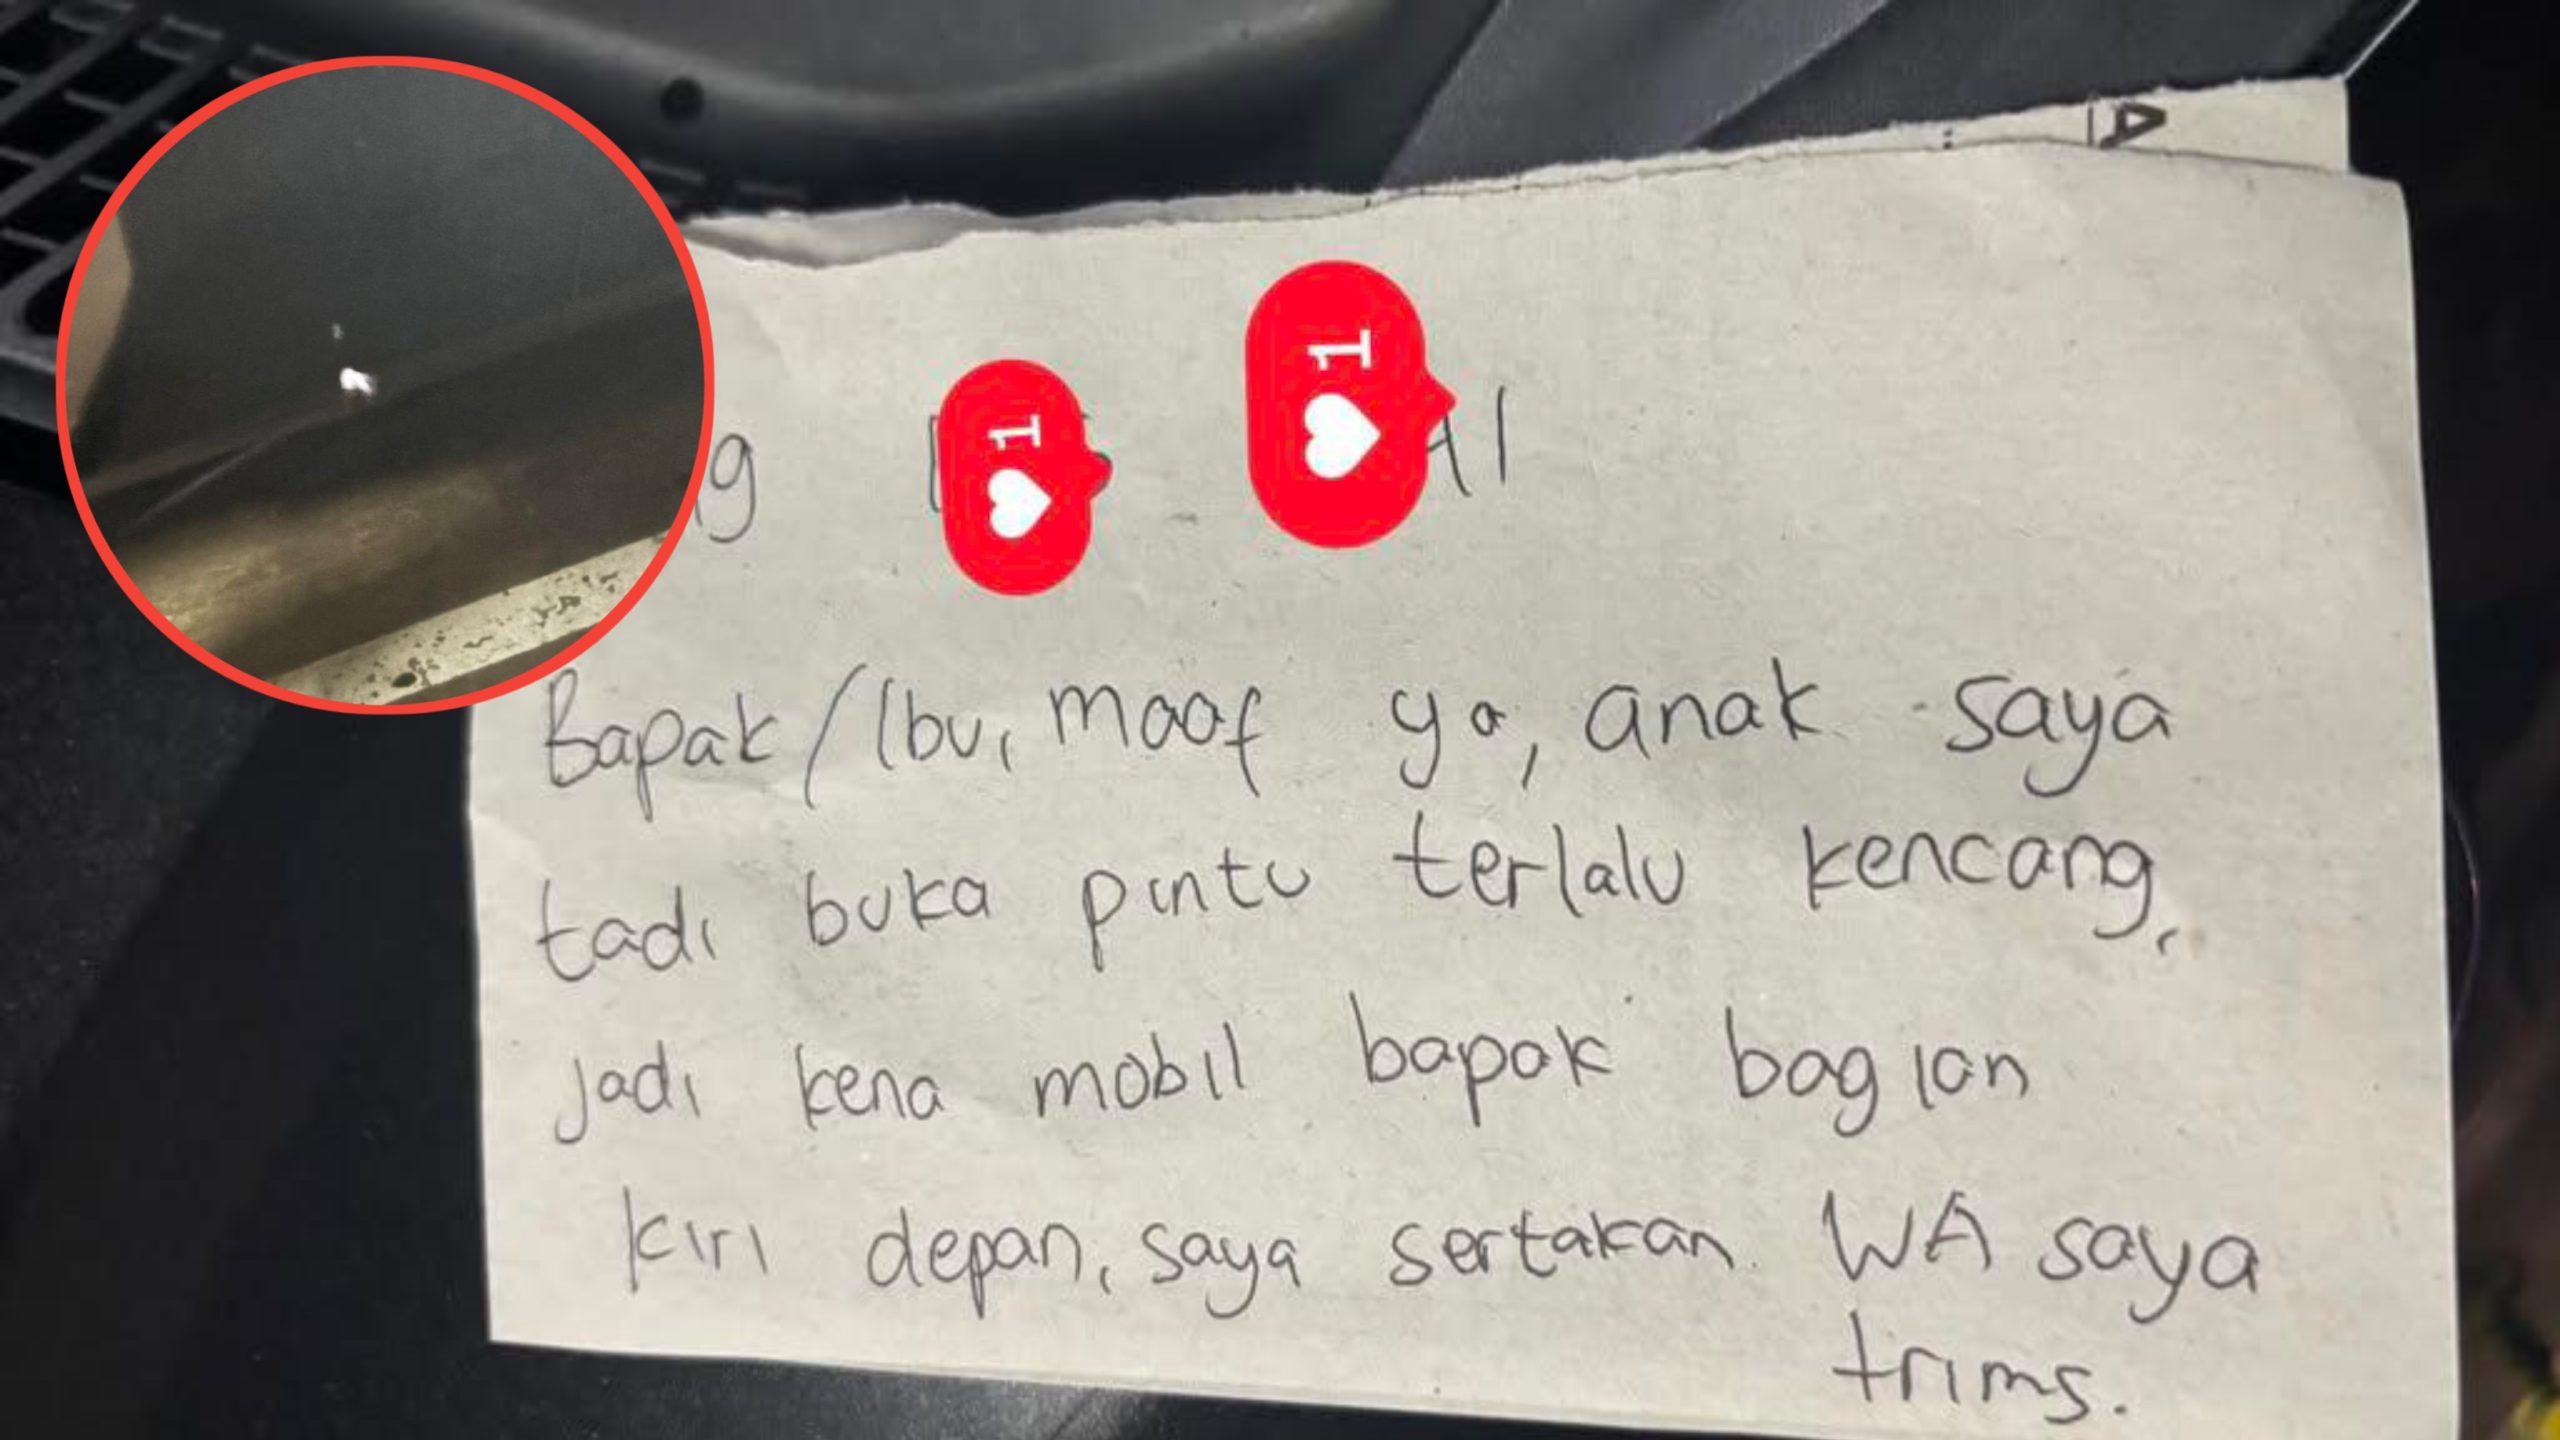 A
1
1
Bapak/Ibu, maaf ya, anak saya
tadi buka pintu terlalu kencang,
jadi kena mobil bapak bagian
kiri depan, saya sertakan WA saya
trims.